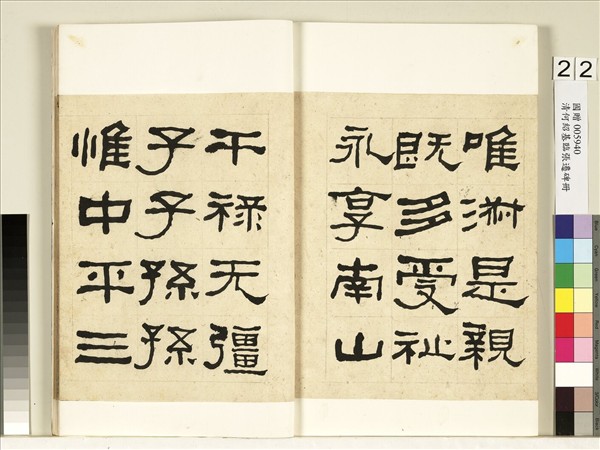 唯淑是親
既多受祉
永享南山
干禄无疆
子子孫孫
惟中平三
22
國贈 005940
清何紹基臨張遷碑冊